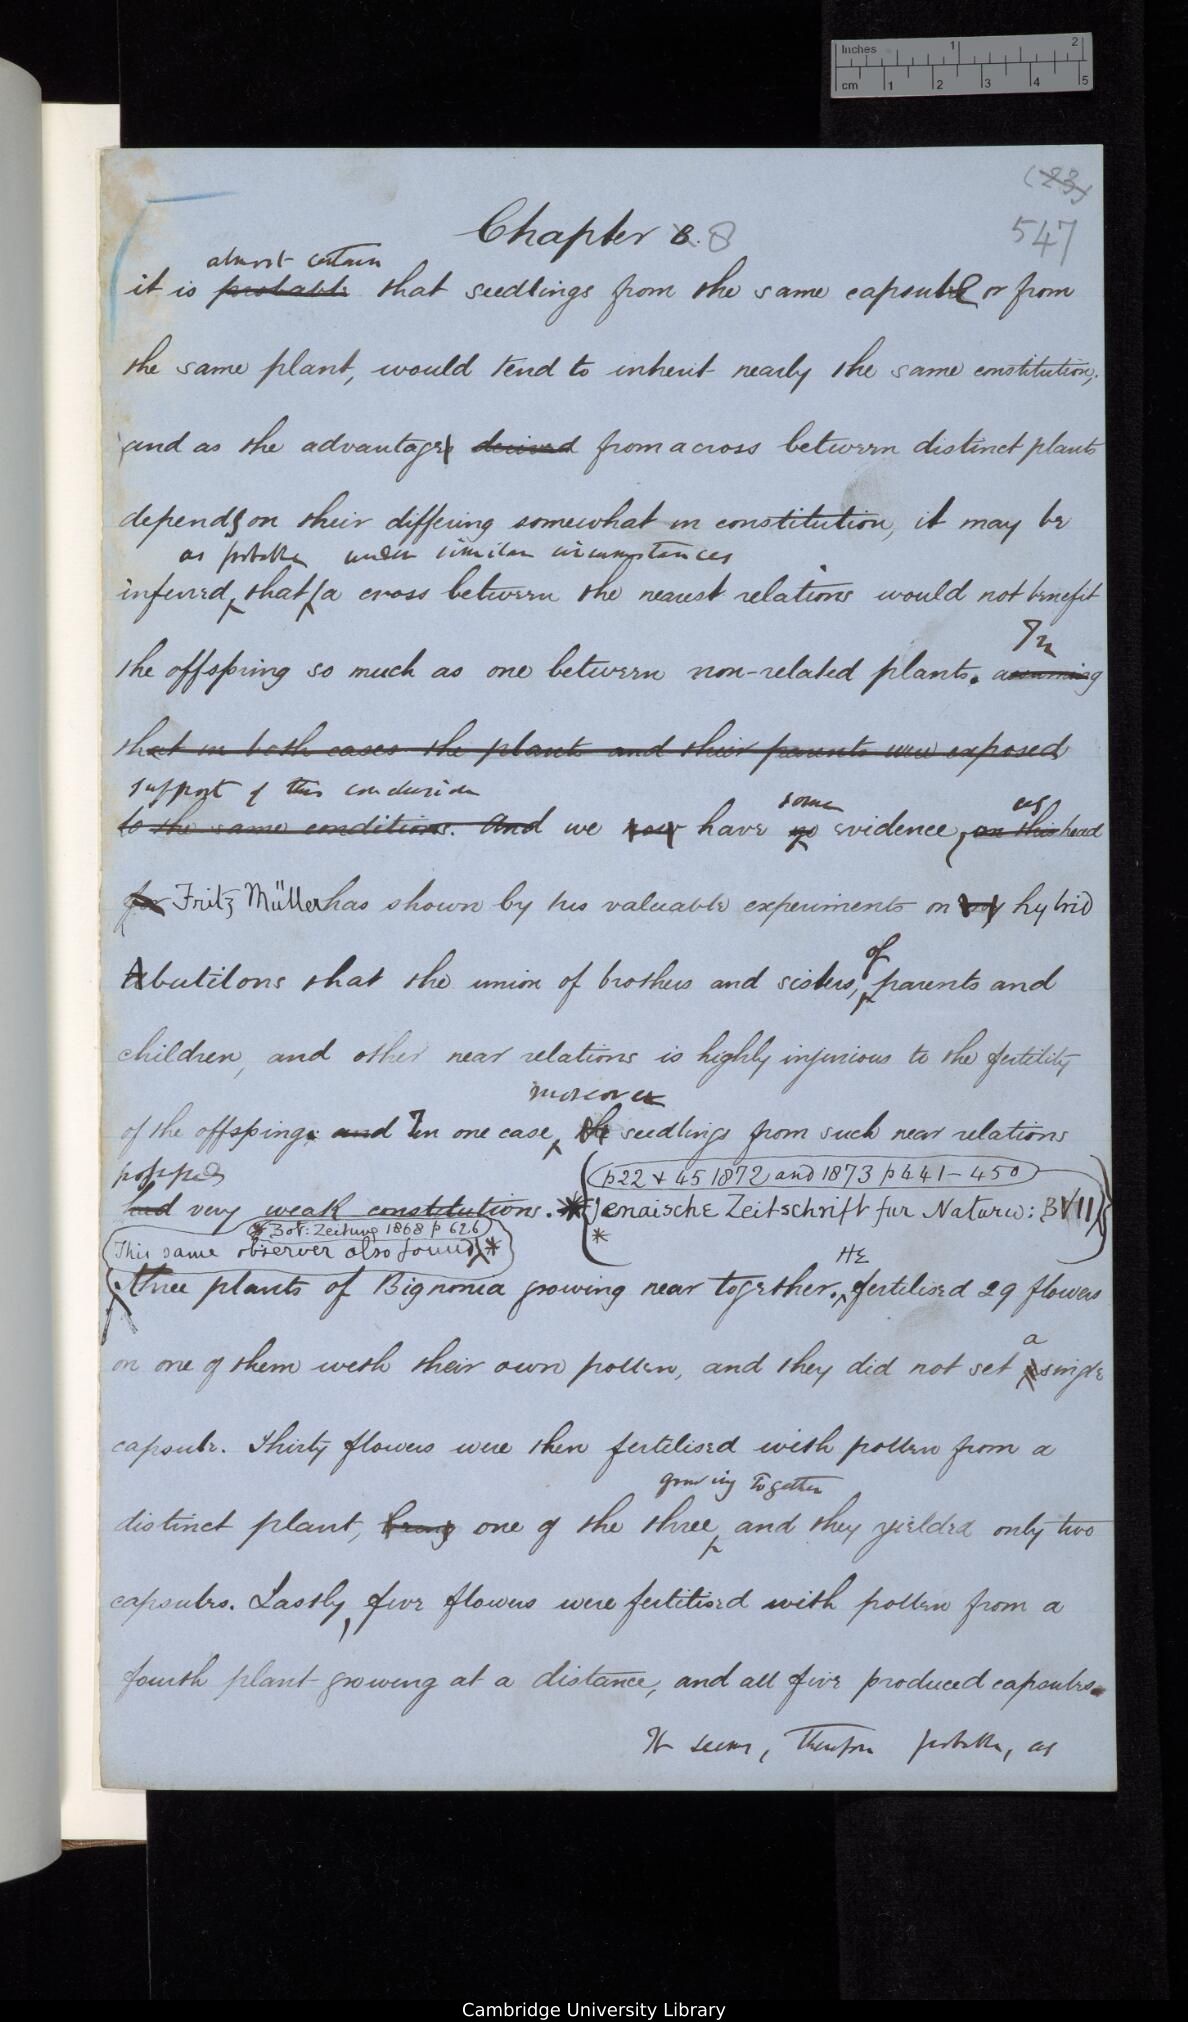 Inches 1 2
cm 1 2 3 4 5
(23)
547
Chapter 8. 8
almost certain
it is probable that seedlings from the same capsule or from
the same plant, would tend to inherit nearly the same constitution,
and as the advantage derived from a cross between distinct plants
depends on their differing somewhat in constitution, it may be
as probable under similar circumstances
inferred, that a cross between the nearest relations would not benefit
the offspring so much as one between non-related plants. assuming
In
that in both cases the plants and their parents were exposed
support of this conclusion
to the same conditions. And we have no evidence, on this head
some as
for Fritz Müller has shown by his valuable experiments on hybrid
Abutilons that the union of brothers and sisters, parents and
of
children, and other near relations is highly injurious to the fertility
moreover
of the offspring. and In one case, the seedlings from such near relations
possessed
had very weak constitutions. *
p 22 & 45 1872 and 1873 p 441-450
Jenaische Zeitschrift fur Naturw: B VII
*
* Bot: Zeitung 1868 p 626
This same observer also found *
three plants of Bignonia growing near together. fertilised 29 flowers
HE
on one of them with their own pollen, and they did not set a single
capsule. Thirty flowers were then fertilised with pollen from a
growing together
distinct plant, being one of the three, and they yielded only two
capsules. Lastly, five flowers were fertilised with pollen from a
fourth plant growing at a distance, and all five produced capsules.
It seems, therefore probable, as
Cambridge University Library